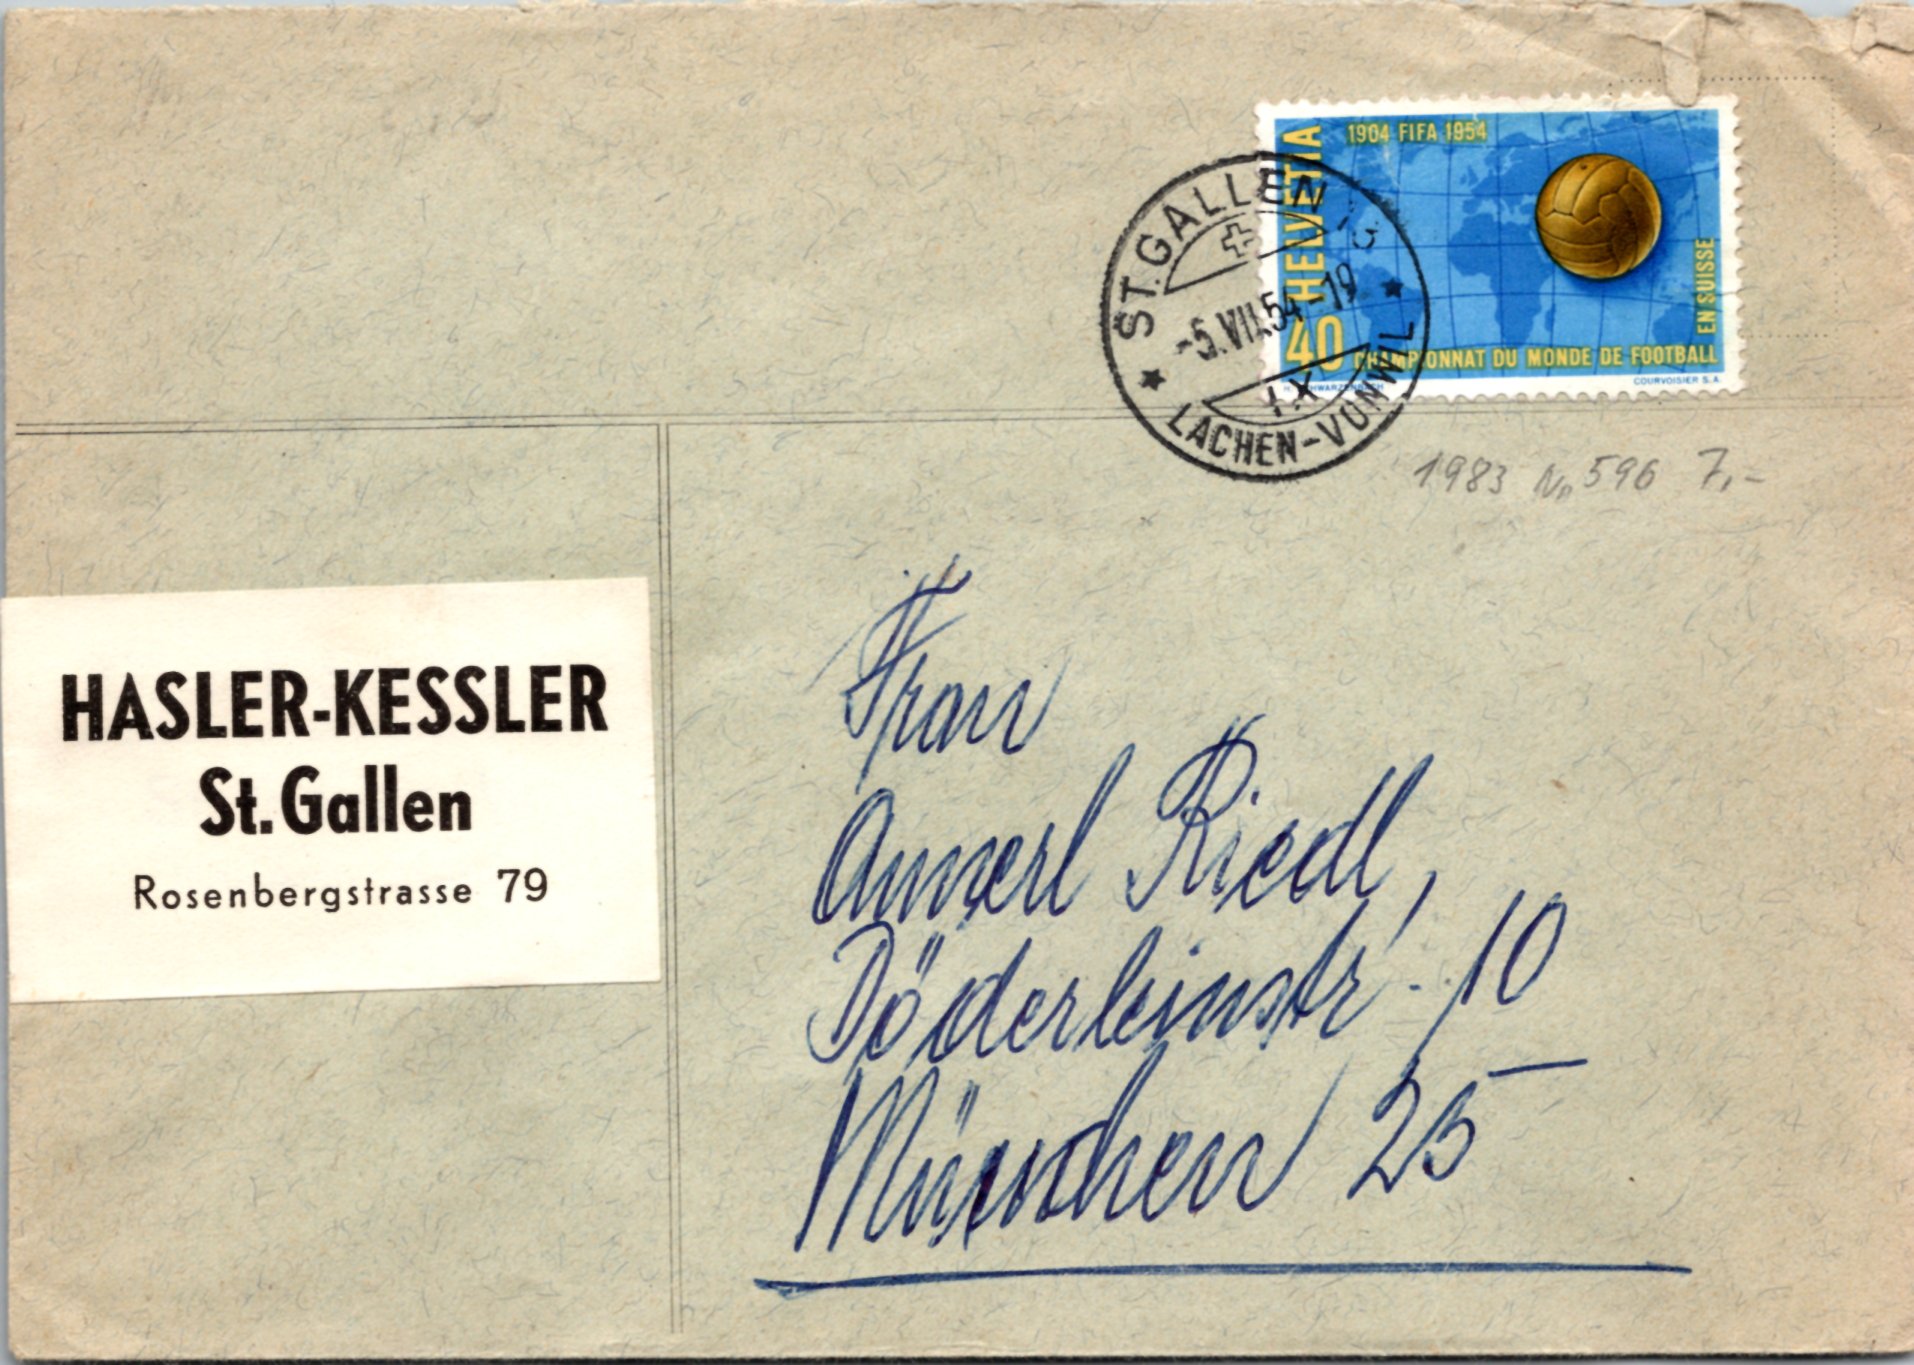 1904 FIFA 1954
HELVETIA
40
EN SUISSE
CHAMPIONNAT DU MONDE DE FOOTBALL
COURVOISIER S.A.
ST. GALLEN
-5.VII.54-19
LACHEN-VONWIL
1983 No 596 7,-
HASLER-KESSLER
St. Gallen
Rosenbergstrasse 79
Frau
Annerl Riedl,
Döderleinstr. 10
München 25